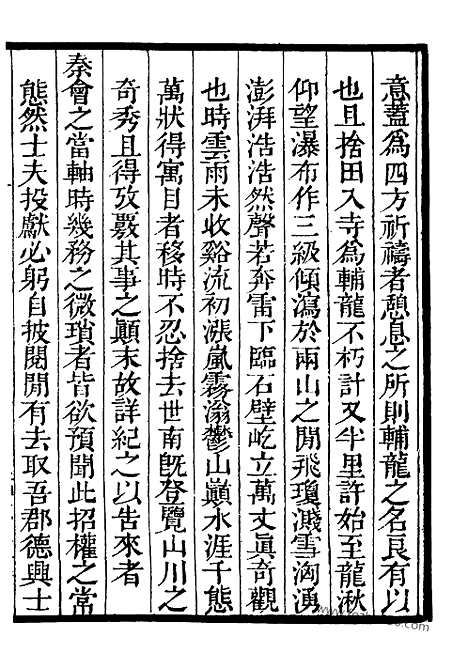 意蓋爲四方祈禱者憩息之所則輔龍之名良有以
也且捨田入寺爲輔龍不朽計又半里許始至龍湫
仰望瀑布作三級傾瀉於兩山之閒飛瓊濺雪洶湧
澎湃浩浩然聲若奔雷下臨石壁屹立萬丈眞奇觀
也時雲雨未收谿流初漲嵐霧滃鬱山巔水涯千態
萬狀得寓目者移時不忍捨去世南旣登覽山川之
奇秀且得攷覈其事之顛末故詳紀之以告來者
秦會之當軸時幾務之微瑣者皆欲預聞此招權之常
態然士夫投獻必躬自披閱閒有去取吾郡德興士